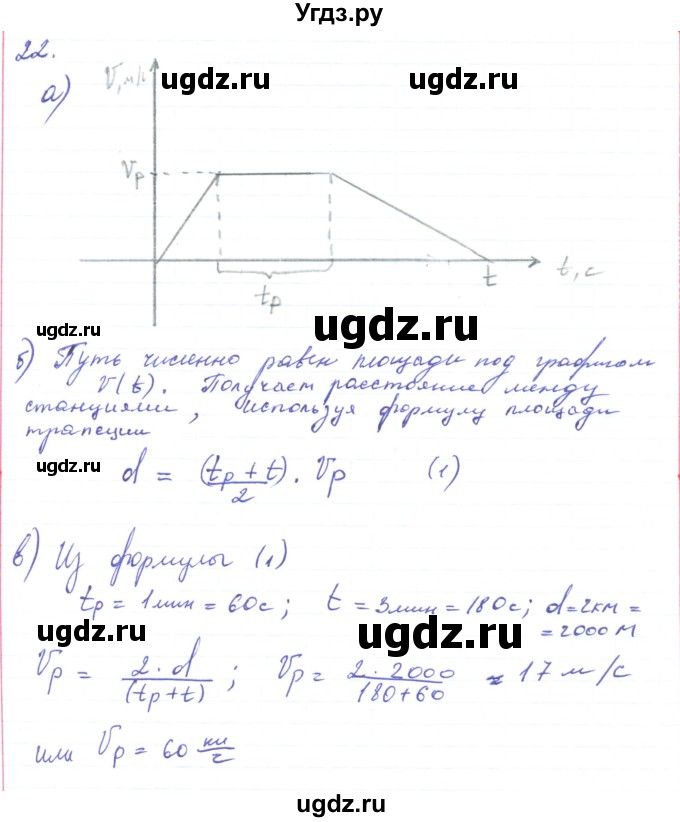 Угдз.ру
22.
а)
V, м/с
ugdz.ru
ugdz.ru
Vр
tр
t
t, с
ugdz.ru
ugdz.ru
б) Путь численно равен площади под графиком
V(t). Получаем расстояние между
станциями, используя формулу площади
трапеции
ugdz.ru
d = (tр + t)/2 · Vр (1)
в) Из формулы (1)
tр = 1 мин = 60 с; t = 3 мин = 180 с; d = 2 км =
= 2000 м
ugdz.ru
ugdz.ru
Vр = 2 · d/(tр + t); Vр = 2 · 2000/180 + 60 ≈ 17 м/с
или Vр = 60 км/ч
ugdz.ru
ugdz.ru